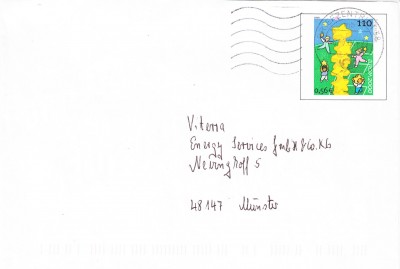 110
0,56€
Viterra
Energy Services GmbH & Co. KG
Nevinghoff 5
48147 Münster